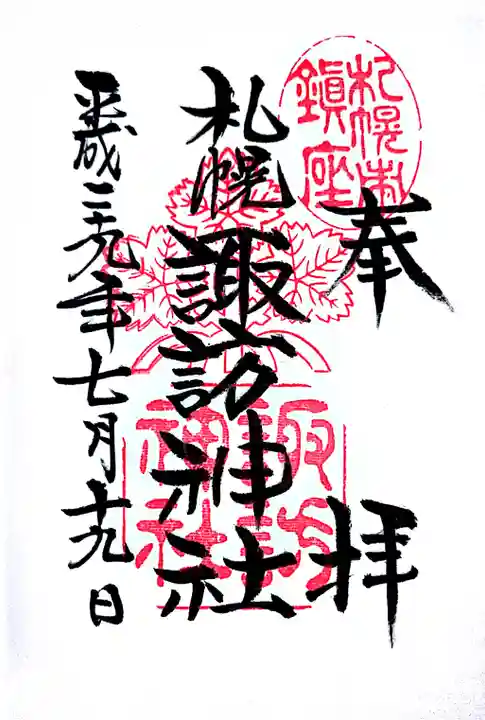 奉拝
札幌鎮座
札幌諏訪神社
諏訪神社
平成二十九年七月十九日